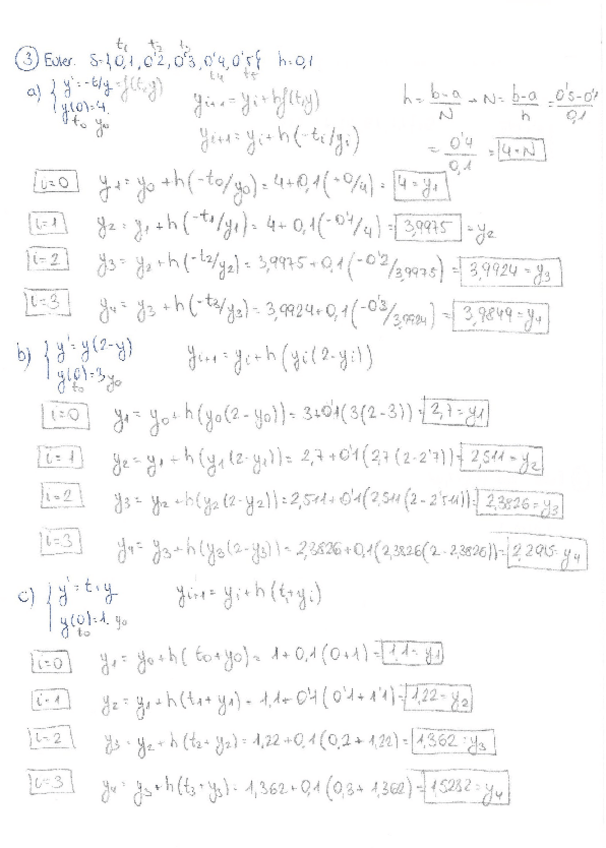 t₁ t₂ t₃
③ Euler. S={0,1, 0'2, 0'3, 0'4, 0'5} h=0,1
t₄ t₅
a) { y'=-t/y = f(t,y)
y(0)=4.
t₀ y₀
yᵢ₊₁ = yᵢ + hf(t,y)
yᵢ₊₁ = yᵢ + h(-tᵢ/yᵢ)
h = b-a/N → N = b-a/h = 0'5-0'1/0,1
= 0'4/0,1 = 4=N
i=0 y₁ = y₀ + h(-t₀/y₀) = 4+0,1(-0/4) = 4=y₁
i=1 y₂ = y₁ + h(-t₁/y₁) = 4+0,1(-0'1/4) = 3,9975 = y₂
i=2 y₃ = y₂ + h(-t₂/y₂) = 3,9975+0,1(-0'2/3,9975) = 3,9924=y₃
i=3 y₄ = y₃ + h(-t₃/y₃) = 3,9924+0,1(-0'3/3,9924) = 3,9849=y₄
b) { y'=y(2-y)
y(0)=3, y₀
t₀
yᵢ₊₁ = yᵢ + h(yᵢ(2-yᵢ))
i=0 y₁ = y₀ + h(y₀(2-y₀)) = 3+0'1(3(2-3)) = 2,7=y₁
i=1 y₂ = y₁ + h(y₁(2-y₁)) = 2,7+0'1(2,7(2-2'7)) = 2,511=y₂
i=2 y₃ = y₂ + h(y₂(2-y₂)) = 2,511+0'1(2,511(2-2'511)) = 2,3826=y₃
i=3 y₄ = y₃ + h(y₃(2-y₃)) = 2,3826+0,1(2,3826(2-2,3826)) = 2,2915=y₄
c) { y'=t+y
y(0)=1. y₀
t₀
yᵢ₊₁ = yᵢ + h(tᵢ+yᵢ)
i=0 y₁ = y₀ + h(t₀+y₀) = 1+0,1(0+1) = 1,1=y₁
i=1 y₂ = y₁ + h(t₁+y₁) = 1,1+0'1(0'1+1'1) = 1,22=y₂
i=2 y₃ = y₂ + h(t₂+y₂) = 1,22+0,1(0,2+1,22) = 1,362=y₃
i=3 y₄ = y₃ + h(t₃+y₃) = 1,362+0,1(0,3+1,362) = 1,5282=y₄